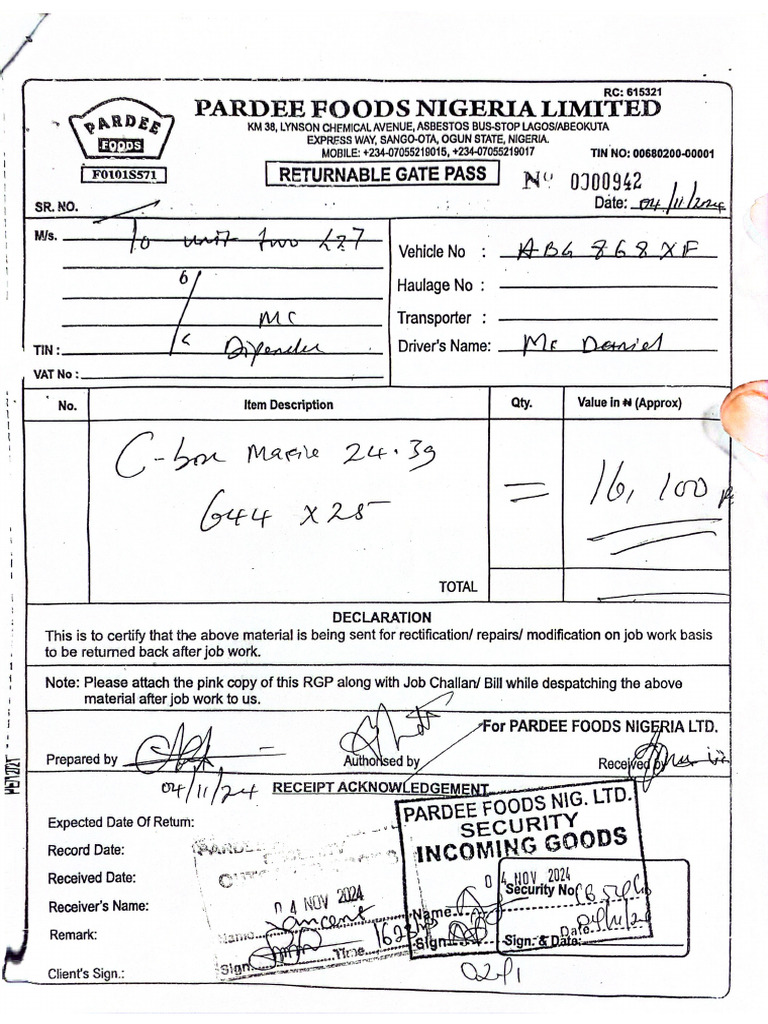 RC: 615321
PARDEE FOODS NIGERIA LIMITED
PARDEE
FOODS
KM 38, LYNSON CHEMICAL AVENUE, ASBESTOS BUS-STOP LAGOS/ABEOKUTA
EXPRESS WAY, SANGO-OTA, OGUN STATE, NIGERIA.
MOBILE: +234-07055219015, +234-07055219017
TIN NO: 00680200-00001
F0101S571
RETURNABLE GATE PASS
No 0000942
SR. NO.
Date: 04/11/2024
M/s. To unit two
Vehicle No : ABG 868 XF
Haulage No :
Mc
Transporter :
TIN : Dipender
Driver's Name: Mr Daniel
VAT No :
No. Item Description Qty. Value in ₦ (Approx)
C-box Marie 24.3g
644 x 25 = 16,100
TOTAL
DECLARATION
This is to certify that the above material is being sent for rectification/ repairs/ modification on job work basis
to be returned back after job work.
Note: Please attach the pink copy of this RGP along with Job Challan/ Bill while despatching the above
material after job work to us.
For PARDEE FOODS NIGERIA LTD.
Prepared by
Authorised by
Received by
04/11/24
RECEIPT ACKNOWLEDGEMENT
Expected Date Of Return:
Record Date:
Received Date:
Receiver's Name:
Remark:
Client's Sign.:
04 NOV 2024
Name
Sign Time
PARDEE FOODS NIG. LTD.
SECURITY
INCOMING GOODS
04 NOV 2024
Security No
Name
Date
Sign
Sign. & Date: